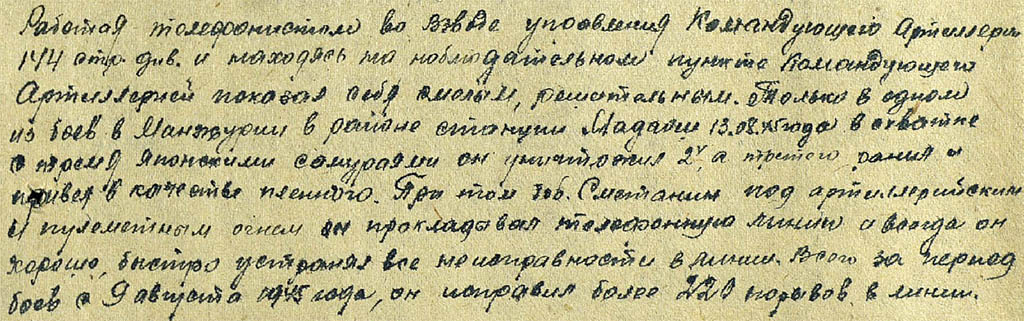 Работая телефонистом во взводе управления Командующего Артиллерии
144 стр. див. и находясь на наблюдательном пункте Командующего
Артиллерией показал себя смелым, решительным. Только в одном
из боев в Манжурии в районе станции 13.08.45 года в схватке
с тремя японскими самураями он уничтожил 2х а третьего ранил и
привел в качестве пленного. При том тов. Сметанин под артиллерийским
и пулеметным огнем он прокладывал телефонную линию и всегда он
хорошо, быстро устранял все неисправности в линии. Всего за период
боев с 9 августа 1945 года, он исправил более 220 порывов в линии.